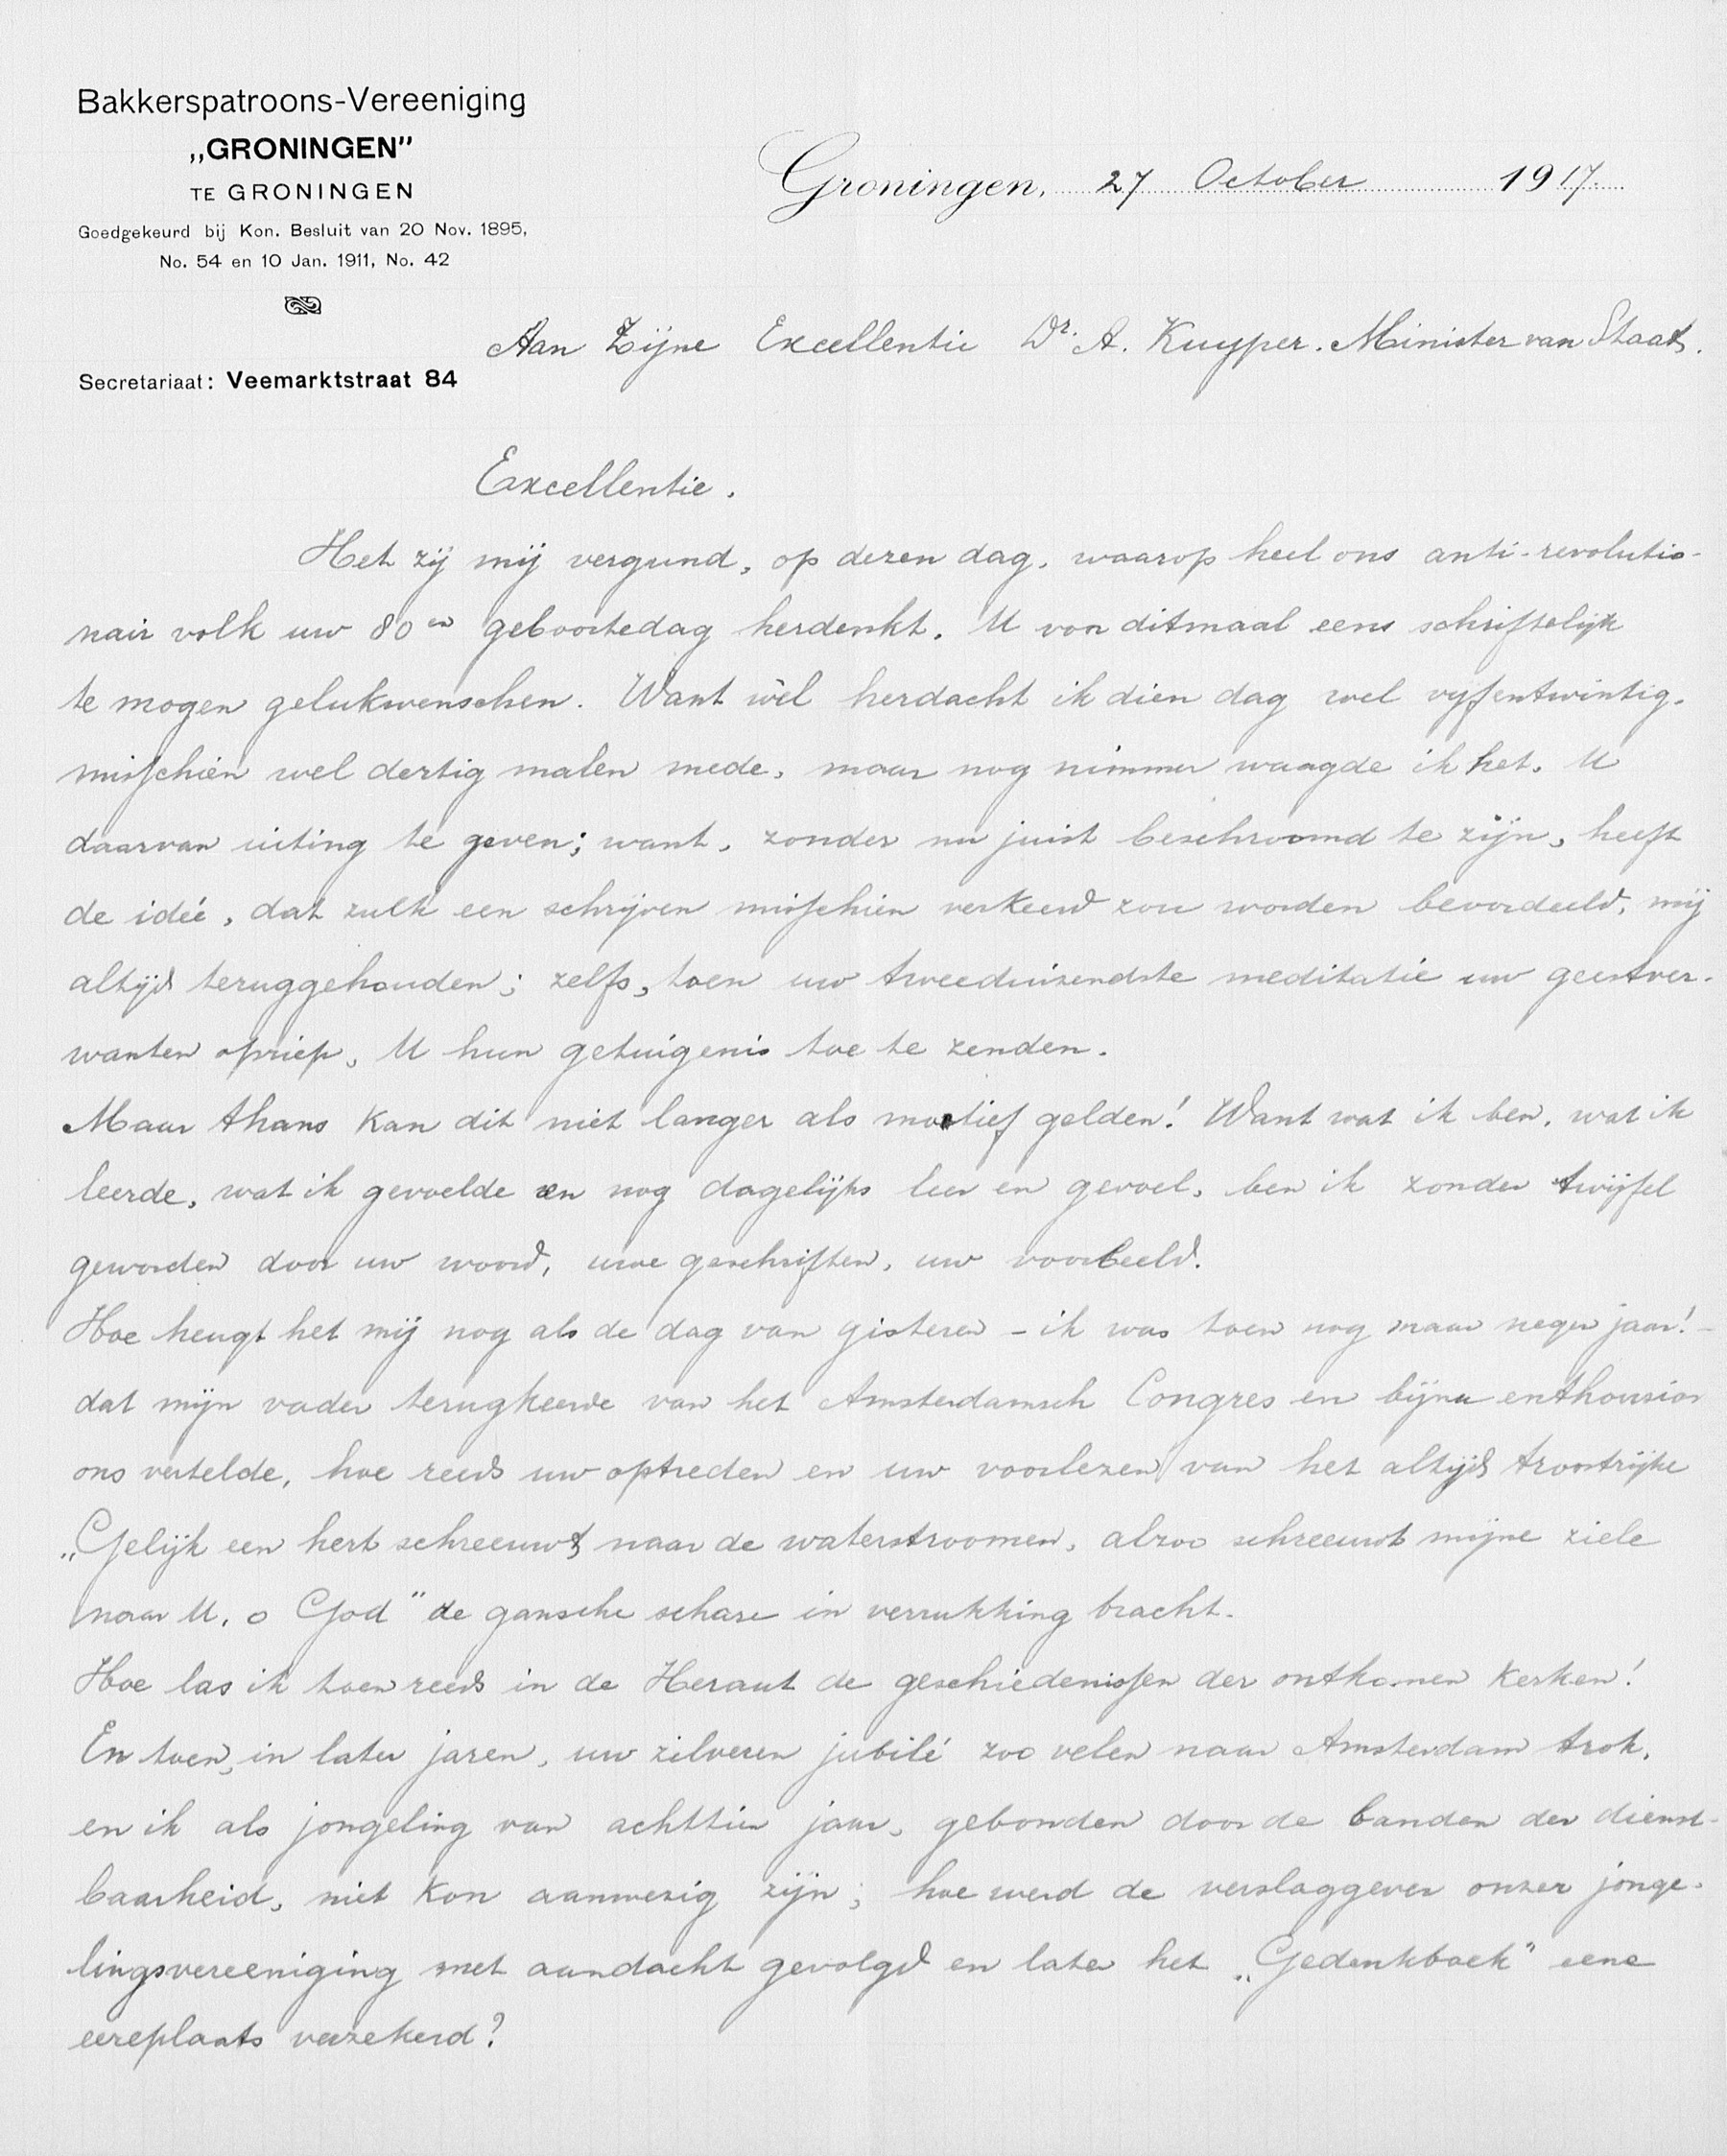 Bakkerspatroons-Vereeniging
„GRONINGEN"
TE GRONINGEN
Goedgekeurd bij Kon. Besluit van 20 Nov. 1895,
No. 54 en 10 Jan. 1911, No. 42
Groningen, 27 October 1917.
Aan Zijne Excellentie Dr. A. Kuyper. Minister van Staat.
Secretariaat: Veemarktstraat 84
Excellentie.
Het zij mij vergund, op dezen dag, waarop heel ons anti-revolutio-
nair volk uw 80en geboortedag herdenkt, U voor ditmaal eens schriftelijk
te mogen gelukwenschen. Want wèl herdacht ik dien dag wel vijfentwintig,
misschien wel dertig malen mede, maar nog nimmer waagde ik het, U
daarvan uiting te geven; want, zonder nu juist beschroomd te zijn, heeft
de idée, dat zulk een schrijven misschien verkeerd zou worden beoordeeld, mij
altijd teruggehouden; zelfs, toen uw tweeduizendste meditatie uw geestver-
wanten opriep, U hun getuigenis toe te zenden.
Maar thans kan dit niet langer als motief gelden! Want wat ik ben, wat ik
leerde, wat ik gevoelde en nog dagelijks leer en gevoel, ben ik zonder twijfel
geworden door uw woord, uwe geschriften, uw voorbeeld.
Hoe heugt het mij nog als de dag van gisteren - ik was toen nog maar negen jaar! -
dat mijn vader terugkeerde van het Amsterdamsch Congres en bijna enthousias
ons vertelde, hoe reeds uw optreden en uw voorlezen van het altijd troostrijke
„Gelijk een hert schreeuwt naar de waterstroomen, alzoo schreeuwt mijne ziele
naar U, o God" de gansche schare in verrukking bracht.
Hoe las ik toen reeds in de Heraut de geschiedenissen der ontkomen kerken!
En toen, in later jaren, uw zilveren jubilé zoo velen naar Amsterdam trok,
en ik als jongeling van achttien jaar, gebonden door de banden der dienst-
baarheid, niet kon aanwezig zijn; hoe werd de verslaggever onzer jonge-
lingsvereeniging met aandacht gevolgd en later het „Gedenkboek" eene
eereplaats verzekerd?